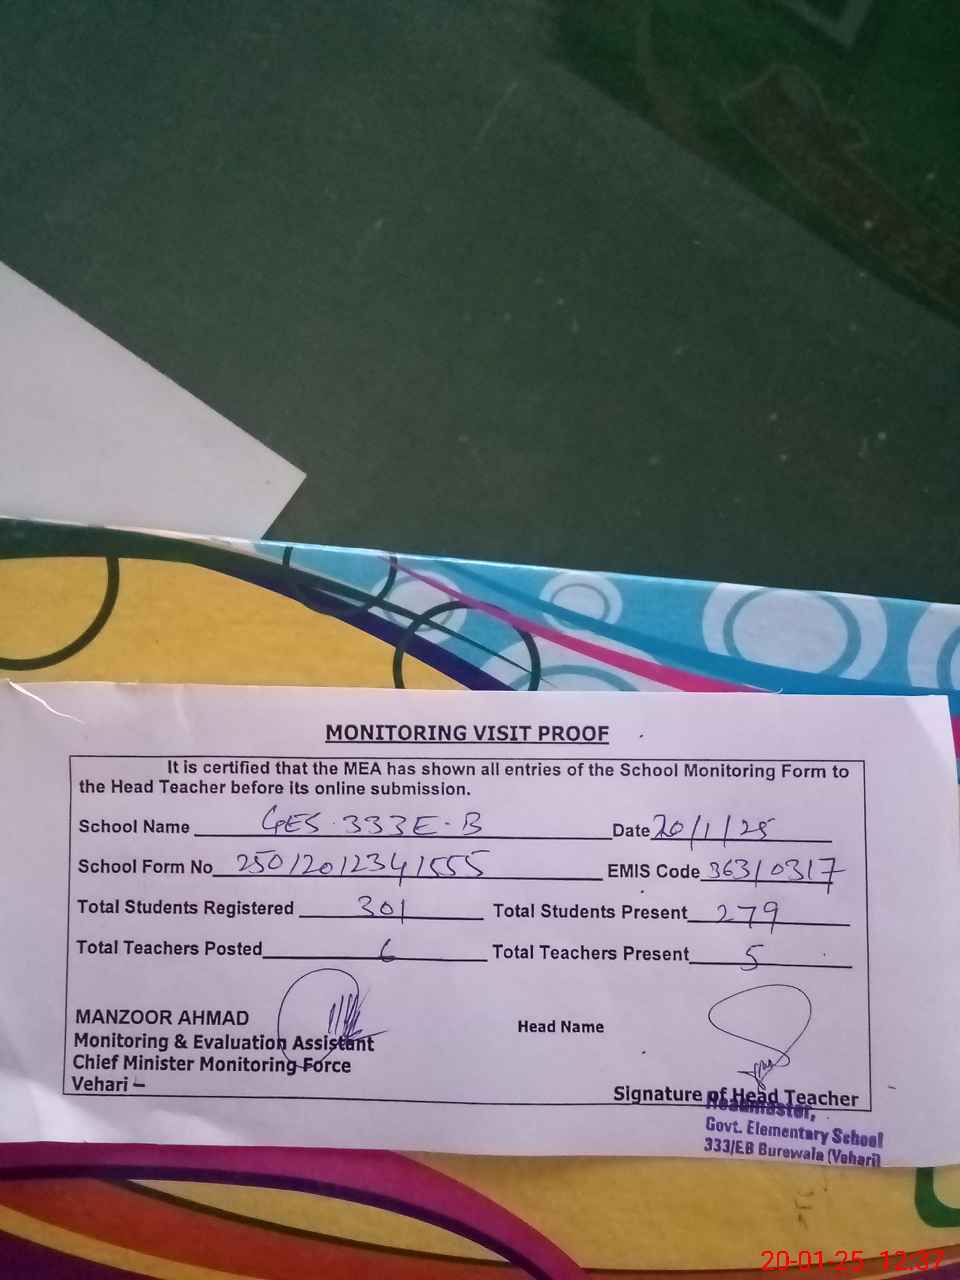 MONITORING VISIT PROOF
It is certified that the MEA has shown all entries of the School Monitoring Form to
the Head Teacher before its online submission.
School Name GES 333E-B Date 20/1/25
School Form No 250120123411555 EMIS Code 36310317
Total Students Registered 301 Total Students Present 279
Total Teachers Posted 6 Total Teachers Present 5
MANZOOR AHMAD
Monitoring & Evaluation Assistant Head Name
Chief Minister Monitoring Force
Vehari –
Signature of Head Teacher
Headmaster,
Govt. Elementary School
333/EB Burewala (Vehari)
20-01-25 12:37